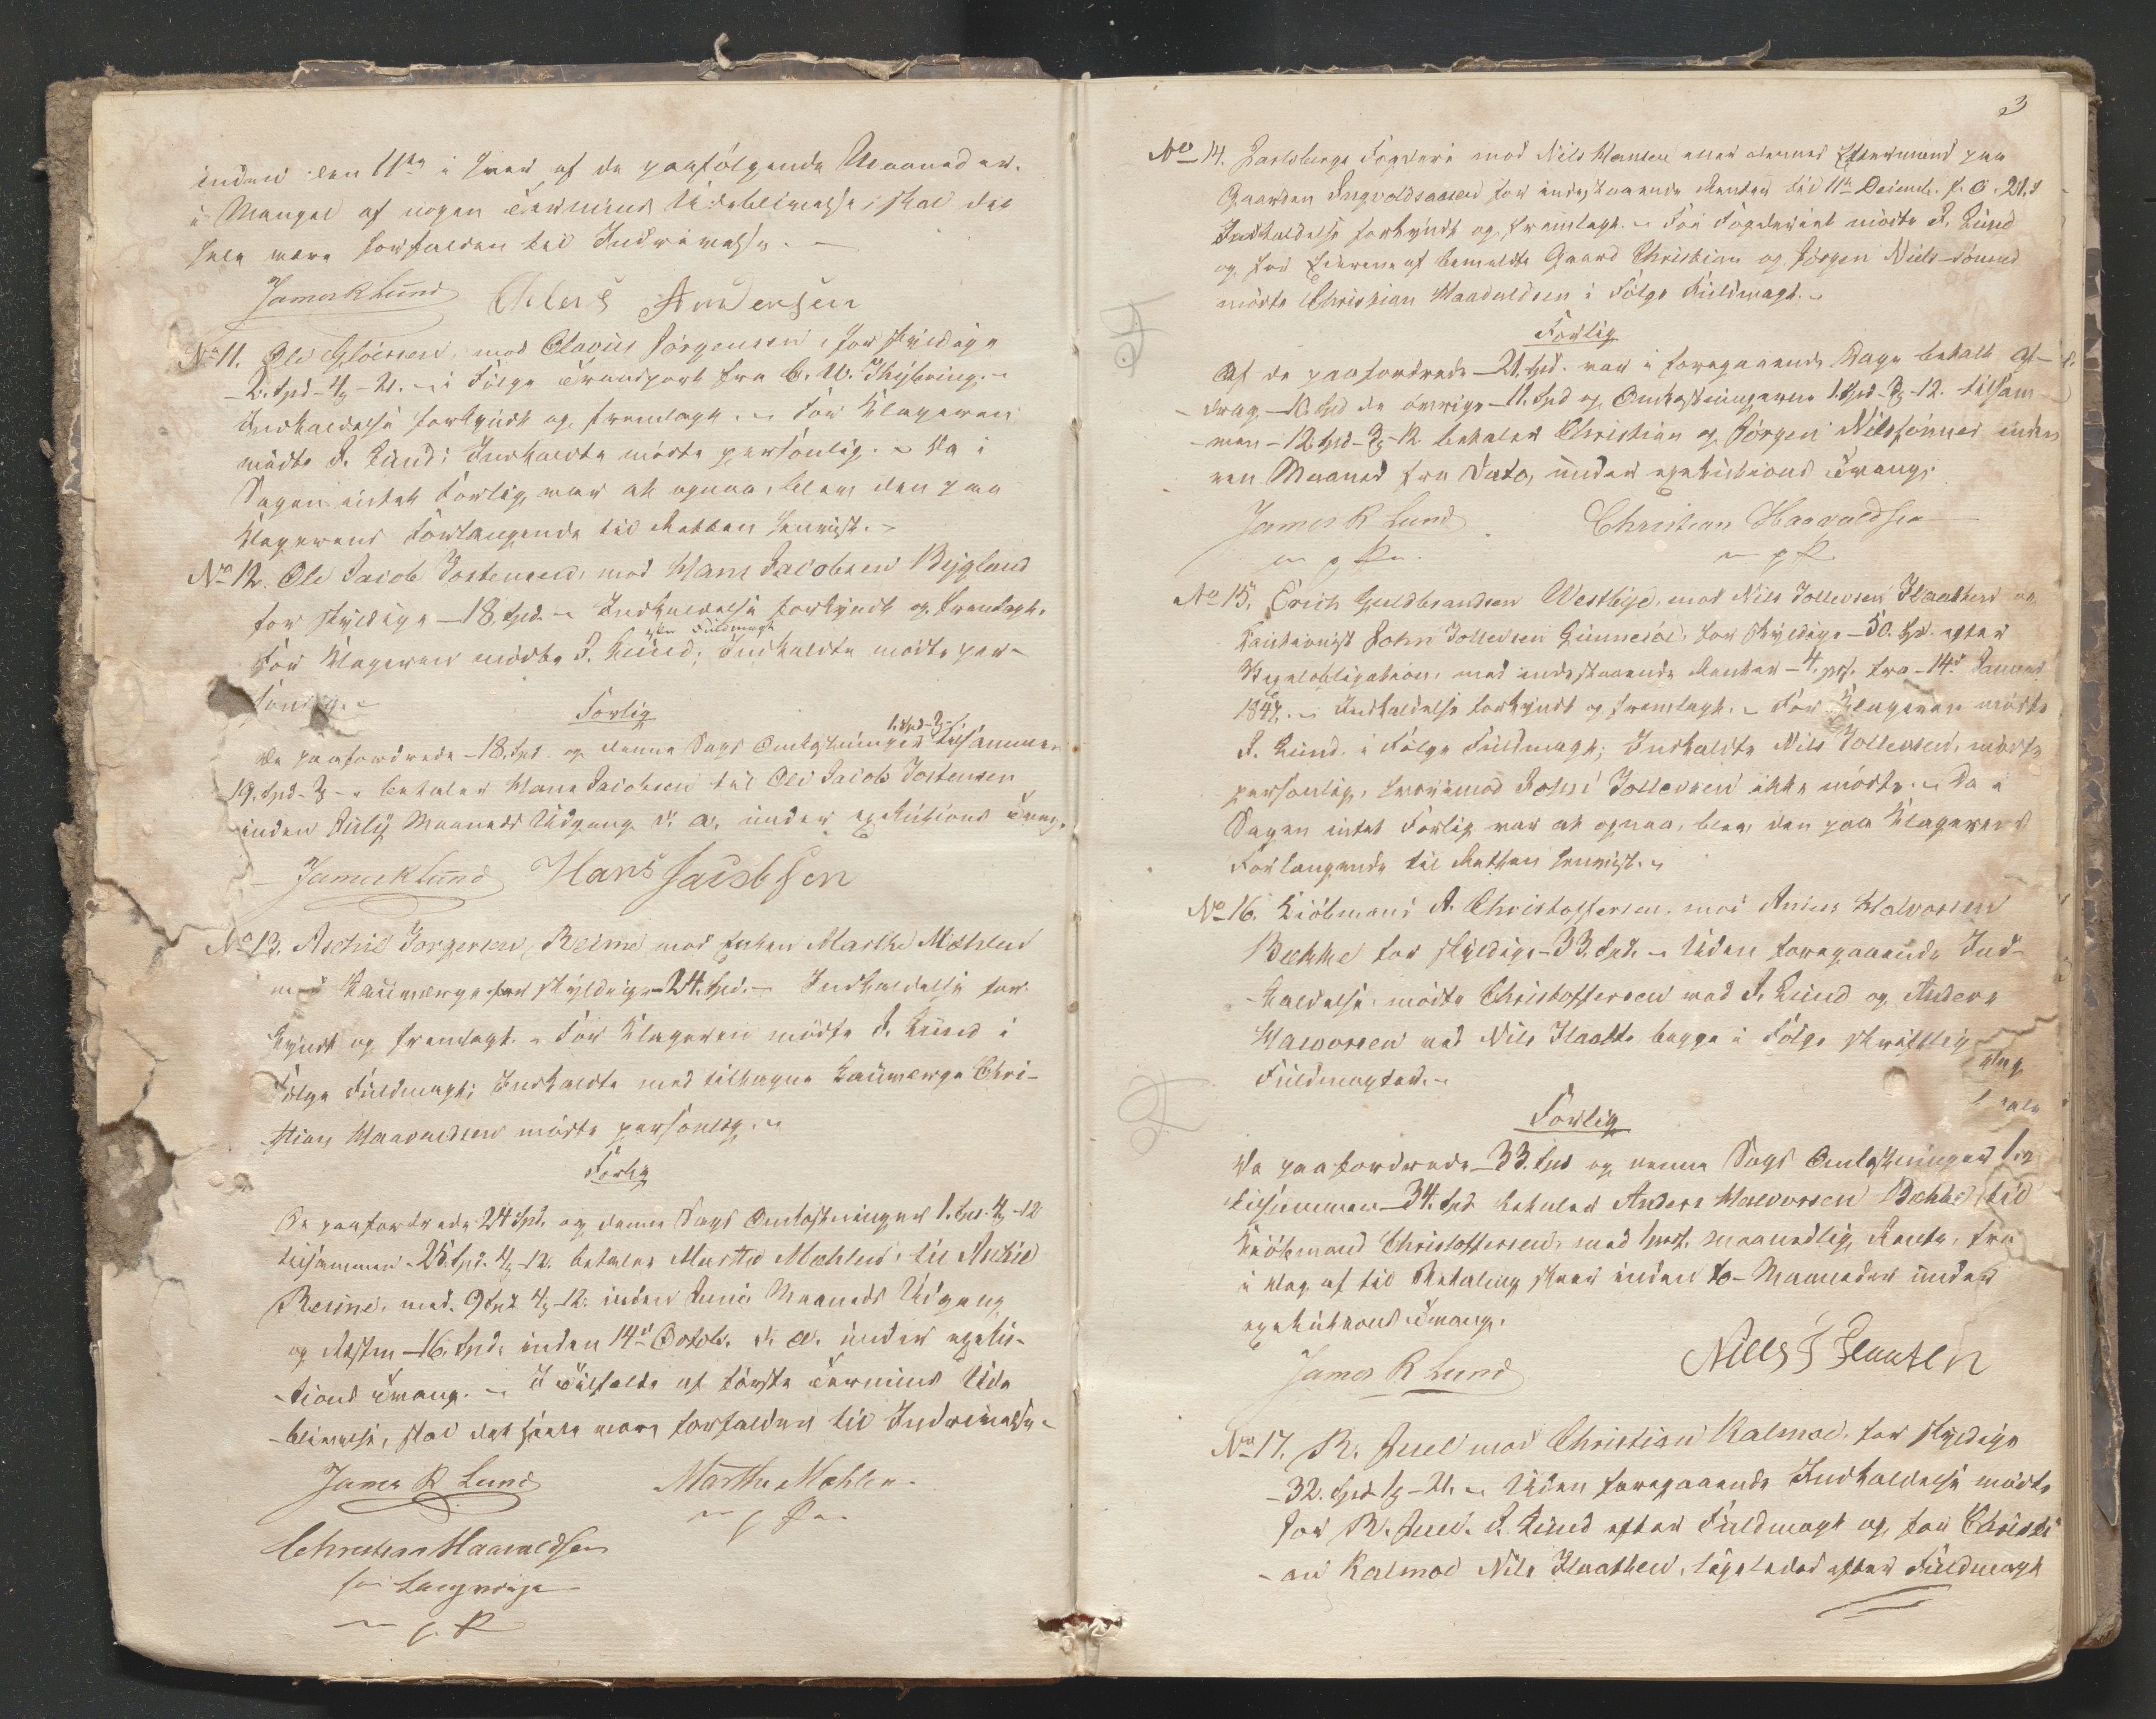 inden den 11te i hver af de paafølgende Maaneder.
i Mangel af nogen Termins Udeblivelse, skal det
hele være forfalden til Indrivelse. —
James R Lund Ehlert Andersen
No 11. Ole Gloersen, mod Olavus Jørgensen, for skyldige
2. Spd – 4 – 21. i Følge Transport fra C. W. Thybring. –
Indkaldelse forkyndt og fremlagt. – For Klageren
mødte J. Lund; Indkaldte mødte personlig. – Da i
Sagen intet Forlig var at opnaa, blev den paa
Klagerens Forlangende til Retten henvist. –
No 12. Ole Jacob Jostensen, mod Hans Jacobsen Bygland
for skyldige – 18. Spd. – Indkaldelse forkyndt og fremlagt.
efter Fuldmagt
For Klageren mødte J. Lund; Indkaldte mødte per-
sonlig. –
Forlig
1. Spd – 3 –
De paafordrede – 18. Spd. og denne Sags Omkostninger tilsammen
19. Spd – 3 – betaler Hans Jacobsen til Ole Jacob Jostensen
inden July Maaneds Udgang d. a. under exekutions Tvang.
James R Lund Hans Jacobsen
No 13. Aschil Torgersen Reime mod Enken Marthe Mæhlen
med Laugværge for skyldige – 24. Spd. – Indkaldelse for-
kyndt og fremlagt. – For Klageren mødte J. Lund i
Følge Fuldmagt; Indkaldte med tilhagne Laugværge Chri-
stian Haavaldsen mødte personlig. –
Forlig
De paafordrede 24 Spd. og denne Sags Omkostninger 1. Spd. 4 – 12
tilsammen – 25. Spd. 4 – 12. betaler Marthe Mæhlen til Aschil
Reime, med. 9 Spd 4 – 12. inden Juni Maaneds Udgang
og Resten – 16. Spd. inden 14d Octobr. d. a. under exeku-
tions Tvang. – I Tilfælde af første Termins Ude-
blivelse, skal det hele være forfalden til Indrivelse –
James R Lund Marthe Mæhlen
m p P
Christian Haavaldsen
som Laugværge
m p P
3
No 14. Jarlsbergs Fogderi mod Nils Hansen eller dennes Eftermand paa
Gaarden Ingvoldsaasen for indestaaende Renter til 11te Decimb. f. A. 21. S
Indkaldelse forkyndt og fremlagt. – For Fogderiet mødte J. Lund
og for Eierene af bemeldte Gaard Christian og Jørgen Niels-sønner
mødte Christian Haavaldsen i Følge Fuldmagt. –
Forlig
Af de paafordrede – 21. Spd. var i foregaaende Dage betalt Af-
drag – 10. Spd de øvrige – 11. Spd og Omkostningerne 1. Spd – 3 – 12. tilsam-
men – 12. Spd – 3 – 12. betaler Christian og Jørgen Nilssønner inden
een Maaned fra Dato, under exekutions Tvang.
James R Lund Christian Haavaldsen
m p P m p P
No 15. Erich Guldbrandsen Westbye, mod Nils Tollevsen Flaathen og
Cautionist John Tollevsen Gunnesøe, for skyldige – 50. Spd. efter
Vexelobligation, med indestaaende Renter – 4. pct. fra – 14d Januar
1847. – Indkaldelse forkyndt og fremlagt. – For Klageren mødte
J. Lund. i Følge Fuldmagt; Indkaldte Nils Tollevsen, mødte
personlig, hvorimod John Tollevsen ikke mødte. – Da i
Sagen intet Forlig var at opnaa, blev den paa Klagerens
Forlangende til Retten henvist. –
No 16. Kiöbmand A. Christoffersen. mod Anders Halvorsen
Bække for skyldige – 33. Spd. – Uden foregaaende Ind-
kaldelse mødte Christoffersen ved J. Lund og Anders
Halvorsen ved Nils Flaathe begge i Følge skriftlig
Fuldmagter. –
Forlig
De paafordrede – 33. Spd og denne Sags Omkostninger 1
tilsammen – 34. Spd betaler Anders Halvorsen Bække til
Kiöbmand Christoffersen, med 1 pct. maanedlig Rente, fra
i Dag af til Betaling skeer inden to – Maaneder under
exekutions Tvang.
James R Lund Niels T Flaaten
No 17. R. Juel mod Christian Kalmoe, for skyldige
– 32. Spd 1 – 21. – Uden foregaaende Indkaldelse mødte
for R. Juel. J. Lund efter Fuldmagt og for Christi-
an Kalmoe Nils Flaathen, ligeledes efter Fuldmagt